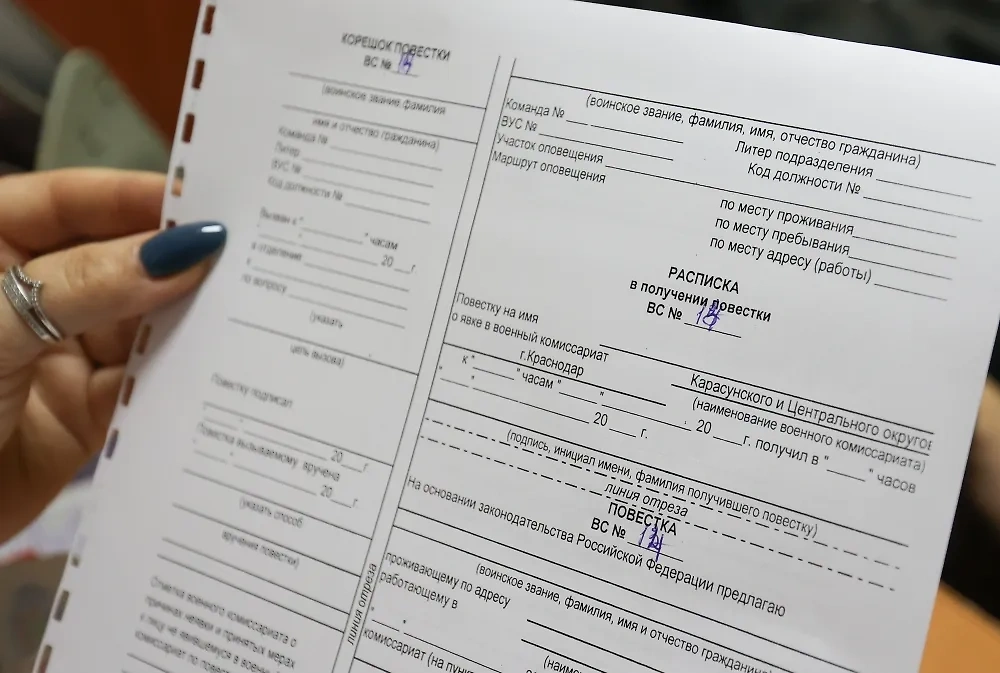 КОРЕШОК ПОВЕСТКИ
ВС №
(воинское звание фамилия
имя и отчество гражданина)
Команда №
Литер
ВУС №
Код должности №
Вызван к " " часам
" 20 г.
в отделение
к
по вопросу
(указать
цель вызова)
Повестку подписал
20 г
Повестка вызываемому вручена
" " 20 г.
(указать способ
вручения повестки)
Отметка военного комиссариата о
причинах неявки и принятых мерах
к лицу не явившемуся в
комиссариат по
линия отреза
(воинское звание, фамилия, имя, отчество гражданина)
Команда № Литер подразделения
ВУС № Код должности №
Участок оповещения
Маршрут оповещения
по месту проживания
по месту пребывания
по месту адресу (работы)
РАСПИСКА
в получении повестки
ВС №
Повестку на имя
о явке в военный комиссариат Карасунского и Центрального округов
г.Краснодар (наименование военного комиссариата)
к " " часам " " 20 г. получил в " " часов
" " 20 г.
(подпись, инициал имени, фамилия получившего повестку)
линия отреза
ПОВЕСТКА
ВС №
На основании законодательства Российской Федерации предлагаю
(воинское звание, фамилия, имя и отчество гражданина)
проживающему по адресу
работающему в
комиссариат (на